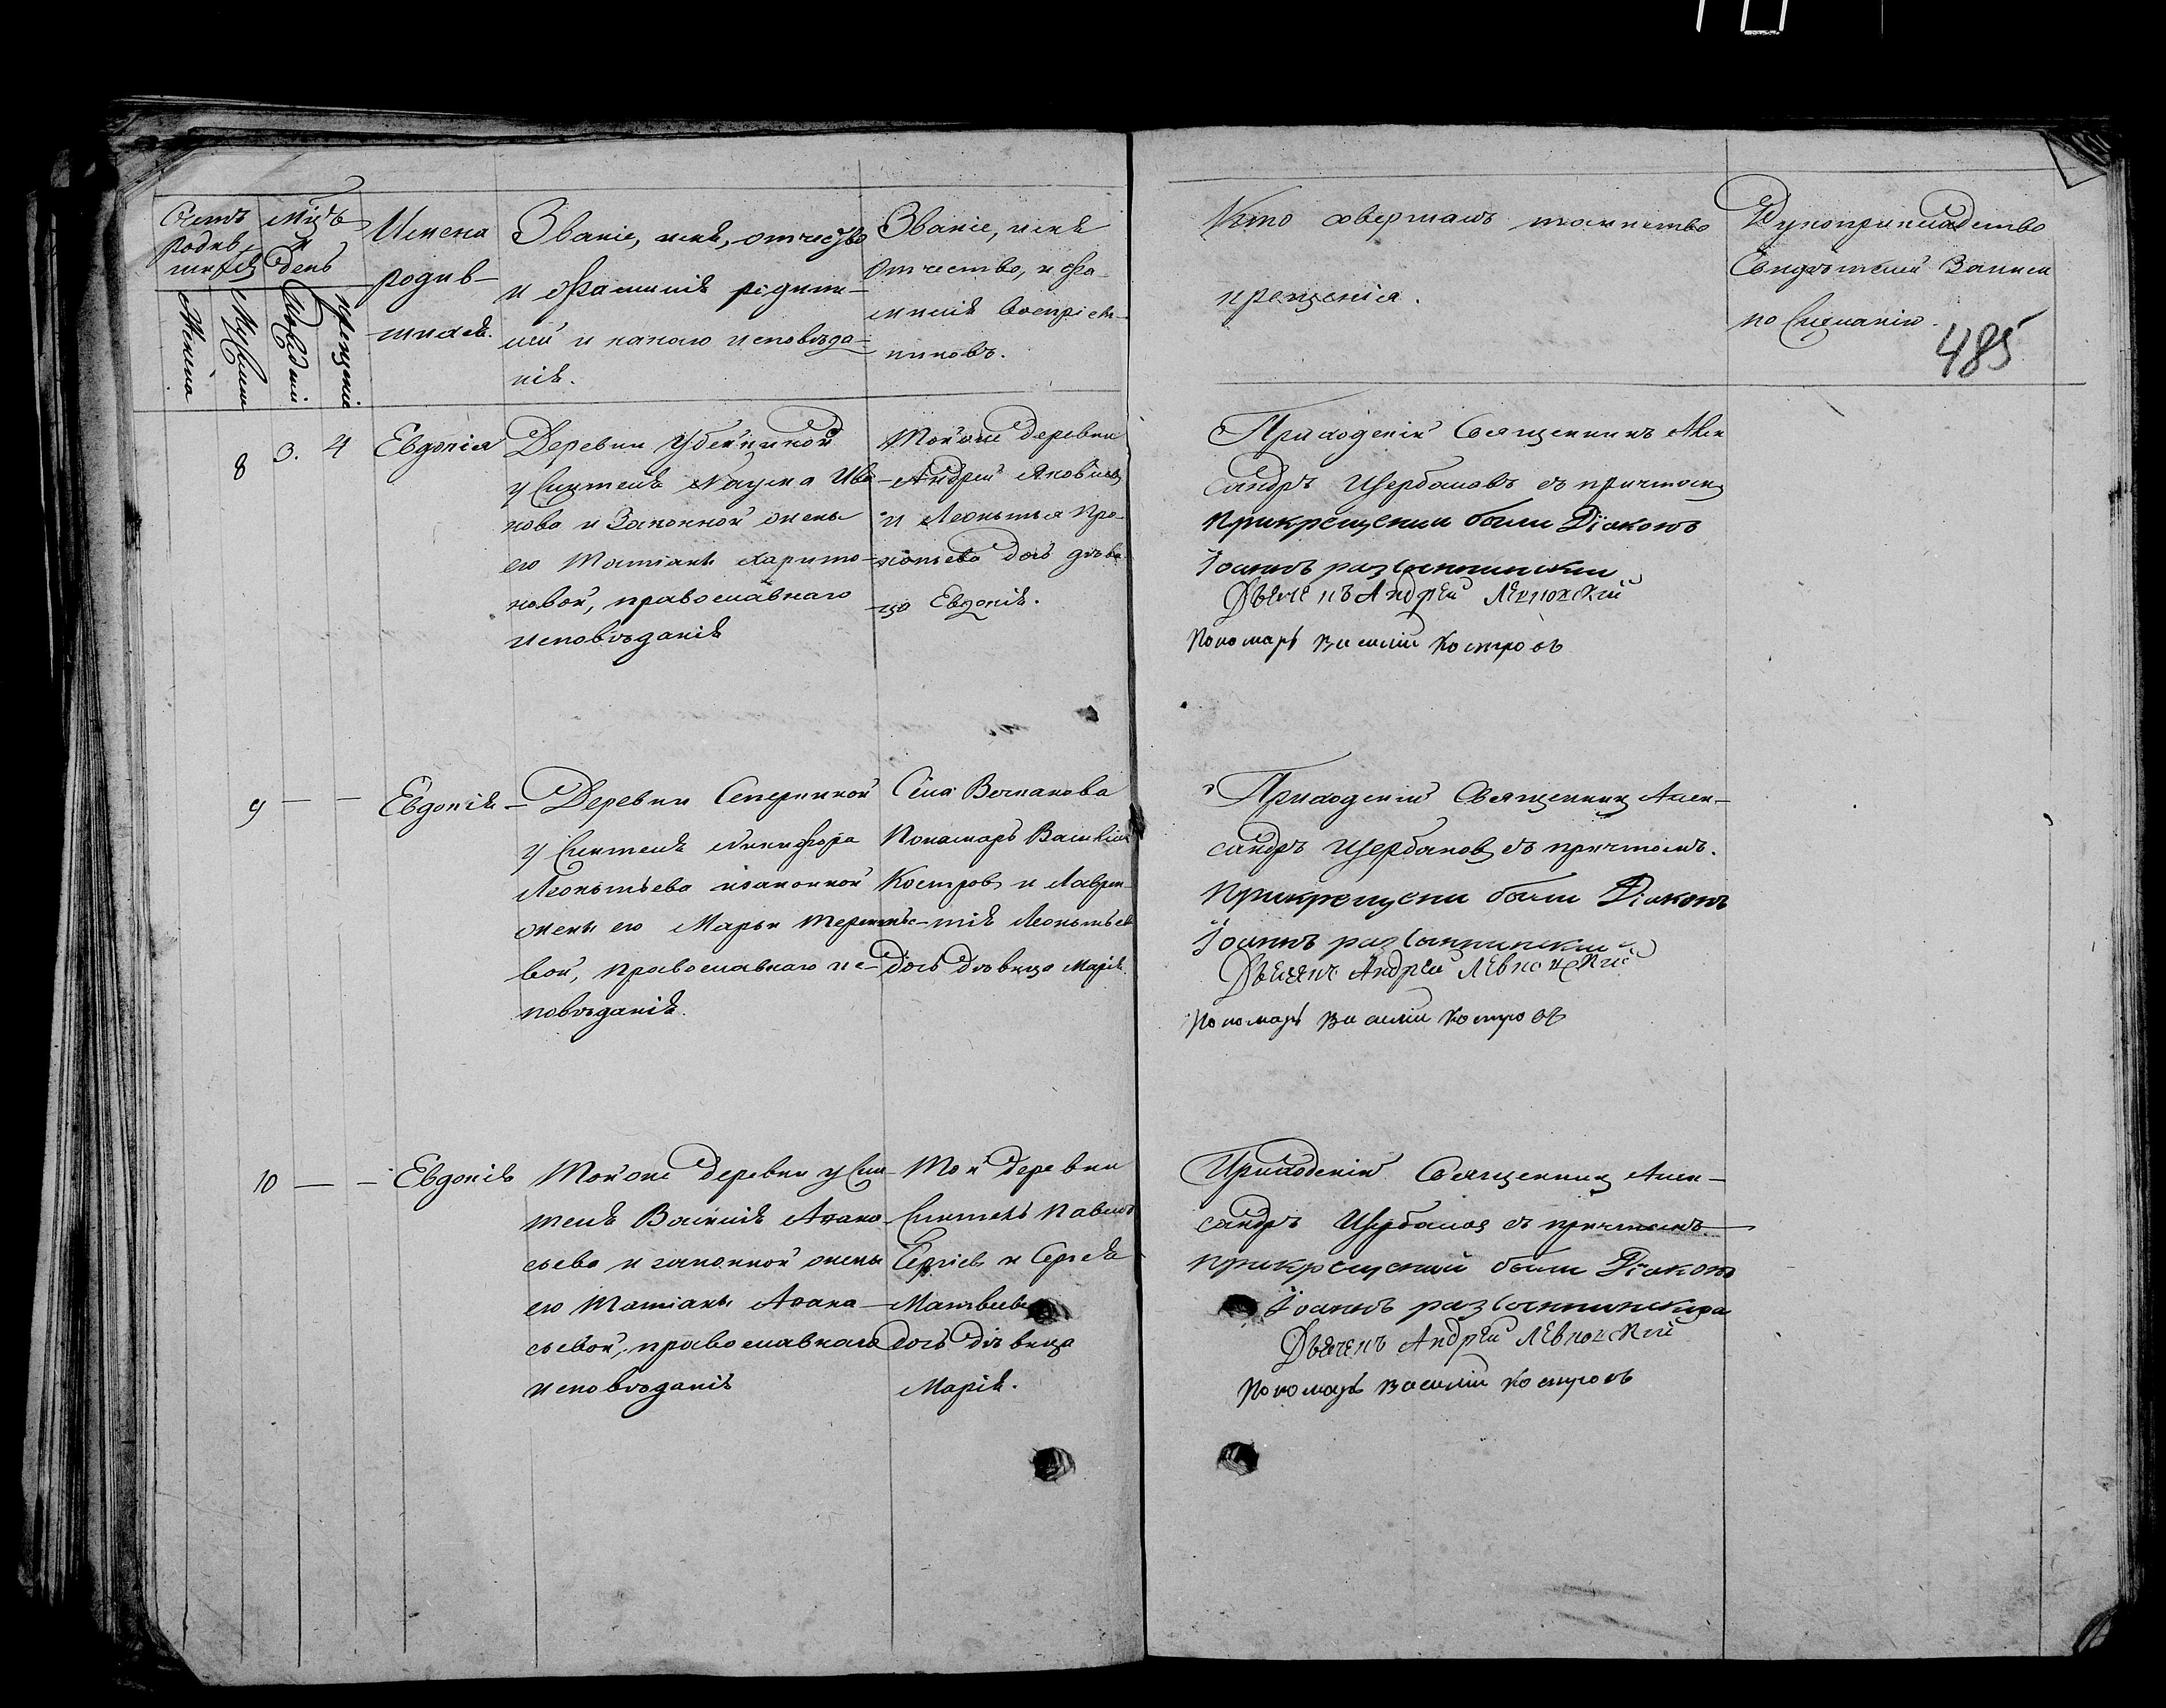 Счетъ родив-
шихся
Мѣсъ
и
день
Женска
Мужеска
Рождения
крещенія
Имена
родив-
шихся.
Званіе, имя, отчество
и Фамилія родите-
лей и какого исповѣда-
нія.
Званіе, имя
отчество, и фа-
милія воспріем-
никовъ.
Кто совершалъ таинство
крещенія.
Рукоприкладство
Свидѣтелей Записи
по желанію.
485
8
3. 4
Евдокія
Деревни
у жителя Наума Ива
нова и Законной жены
его Татіаны Харито-
новой, православнаго
исповѣданія
Той же деревни
Андрей Яковлевъ
и Леонтья Про-
дочь дѣви
ца Евдокія.
Приходскій Священникъ Алек
сандръ Щербаковъ съ причтомъ
при крещении были Діаконъ
Іоаннъ
Дьячекъ Андрей
Пономарь Василій Костровъ
9 — —
Евдокія
Деревни
у жителя Никифора
Леонтьева и законной
жены его Марьи
вой, православнаго ис-
повѣданія.
Села
Пономарь Василій
Костровъ и Лаврен-
тія Леонтьев
дочь дѣвица Марія.
Приходскій Священникъ Алек-
сандръ Щербаковъ съ причтомъ.
при крещени были Діаконъ
Іоаннъ
Дьячекъ Андрей
Пономарь Василій Костровъ
10 — —
Евдокія
Той же деревни у жи-
теля Василія Афана
сьева и законной жены
его Татіаны Афана-
сьевой, православнаго
исповѣданія
Той деревни
житель Павелъ
Сергіевъ и Сергѣя
Матвѣева
дочь дѣвица
Марія.
Приходскій Священникъ Алек-
сандръ Щербаковъ съ причтомъ
при крещений были Діаконъ
Іоаннъ
Дьячекъ Андрей
Пономарь Василій Костровъ